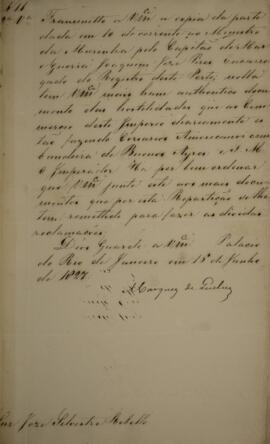 Transmitto a Vmce a copia da parte
dada em 10 do corrente ao Ministro
da Marinha pelo Capitão de Mar
e Guerra Joaquim José Pires encarre
gado do Registo deste Porto, nella
tem Vmce mais hum authentico docu
mento das hostilidades que ao Com
mercio deste Imperio diariamente es
tão fazendo Corsarios Americanos com
bandeira de Buenos Ayres e S. M.
O Imperador Ha por bem ordenar
que Vmce junte este aos mais docu
mentos que por esta Repartição se lhe
tem remettido para fazer as devidas
reclamações.
Deos Guarde a Vmce Palacio
do Rio de Janeiro em 15 de Junho
de 1827
Marquez de Queluz
Snr José Silvestre Rebello